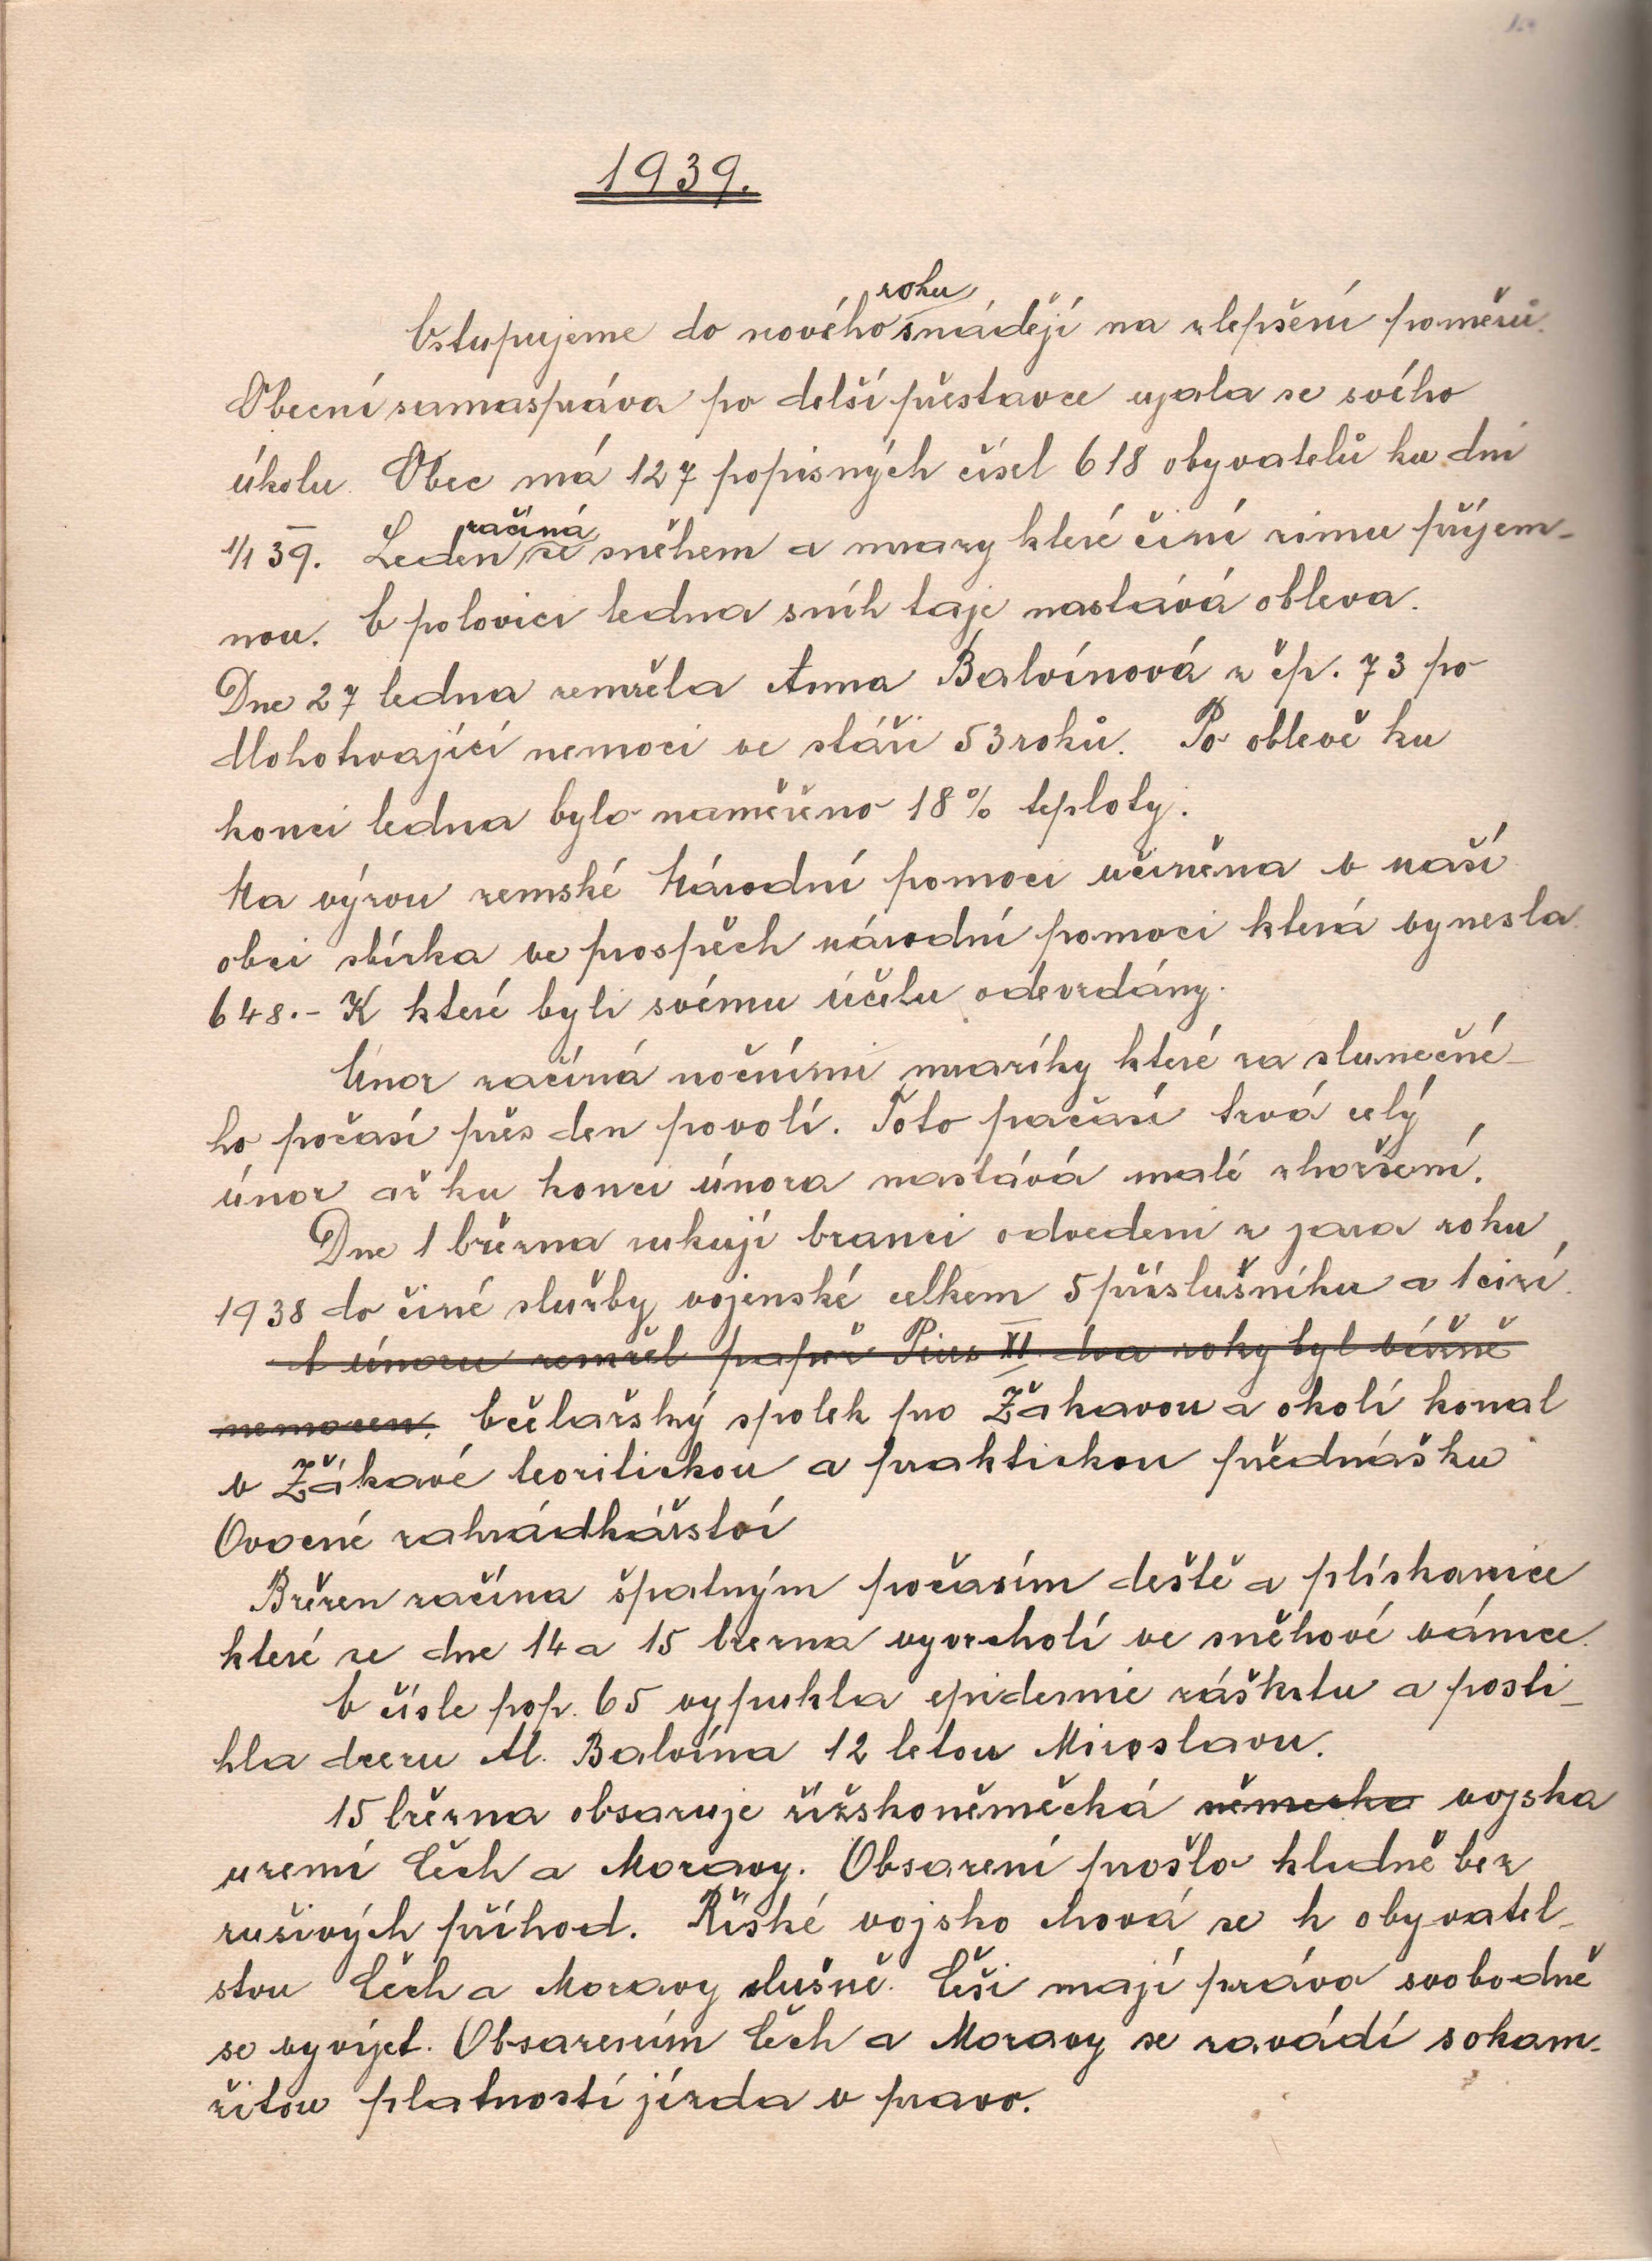 1939.
Vstupujeme do nového roku s nadějí na zlepšení poměrů.
Obecní samaspráva po delší přestavce ujala se svého
úkolu. Obec má 127 popisných čísel 618 obyvatelů ku dni
1/1 39. Leden začíná se sněhem a mrazy které činí zimu příjem-
nou. V polovici ledna sníh taje nastává obleva.
Dne 27 ledna zemřela Anna Balvínová z čp. 73 po
dlohotrvající nemoci ve stáři 53 roků. Po oblevě ku
konci ledna bylo naměřeno 18% teploty.
Na výzvu zemské Národní pomoci učiněna v naší
obci sbírka ve prospěch národní pomoci která vynesla
648.- K které byli svému účelu odevzdány.
Únor začíná nočními mrazíky které za slunečné-
ho počasí přes den povolí. Toto pačasí trvá celý
únor až ku konci února nastává malé zhoršení.
Dne 1 března rukují branci odvedeni z jara roku
1938 do činé služby vojenské celkem 5 příslušníku a 1 cizí.
V únoru zemřel papež Pius XI. dva roky byl vážně
nemocen. Včelařský spolek pro Žákavou a okolí konal
v Žákavé teoritickou a praktickou přednášku
Ovocné zahrádkářství
Březen začína špatným počasím deště a plískanice
které se dne 14 a 15 brezna vyvrcholí ve sněhové vánice.
V čísle pop. 65 vypukla epidemie záškrtu a posti-
hla dceru Al. Balvína 12 letou Miroslavu.
15 března obsazuje řížskoněměčká německa vojska
uzemí Čech a Moravy. Obsazení prošlo kludně bez
rušivých příhod. Říšké vojsko chová se k obyvatel-
stvu Čech a Moravy slušně. Češi mají právo svobodně
se vyvíjet. Obsazením Čech a Moravy se zavádí s okam-
žitou platností jízda v pravo.